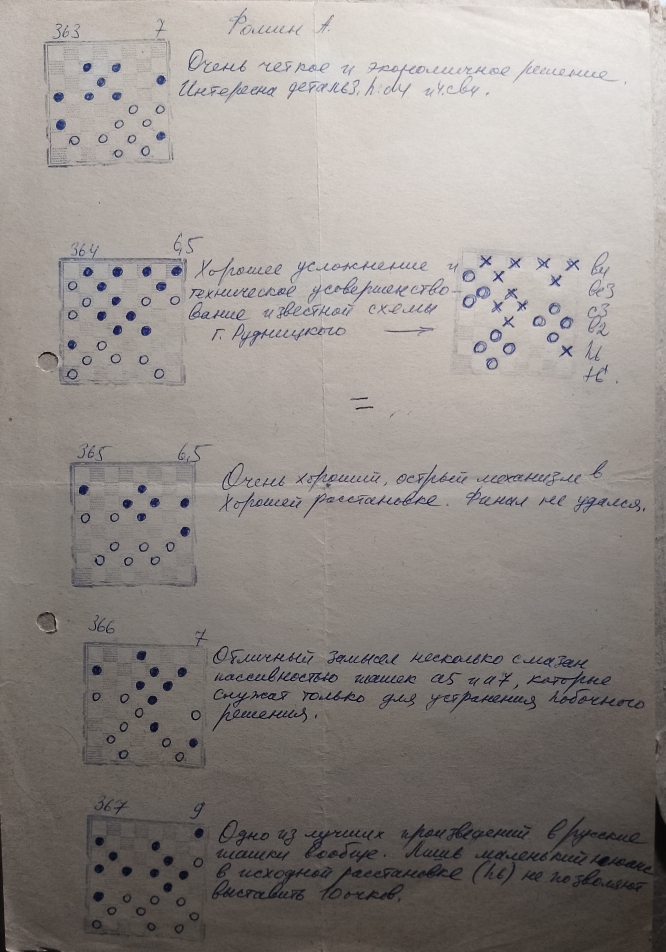 363 7 Фомин А.
Очень четкое и экономичное решение.
Интересна деталь 3. h:d4 и 4. cb4.
364 6,5
Хорошее усложнение и
техническое усовершенство-
вание известной схемы
Г. Рудницкого →
b4
c3
b2
h6
=
365 6,5
Очень хороший, острый механизм в
хорошей расстановке. Финал не удался.
366 7
Отличный замысел несколько смазан
пассивностью шашек a5 и a7, которые
служат только для устранения побочного
решения.
367 9
Одно из лучших произведений в русские
шашки вообще. Лишь маленький нюанс
в исходной расстановке (h6) не позволяет
выставить 10 очков.